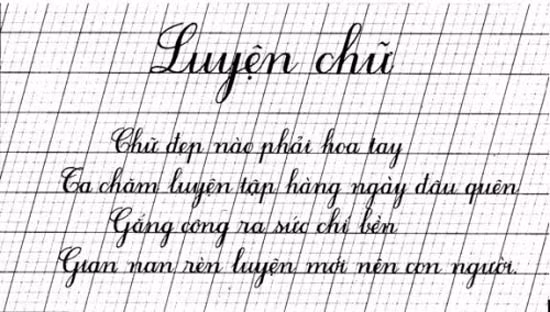 Luyện chữ
Chữ đẹp nào phải hoa tay
Ta chăm luyện tập hàng ngày đâu quên
Gắng công ra sức chí bền
Gian nan rèn luyện mới nên con người.